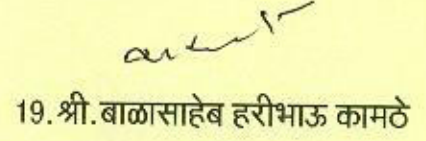 19.श्री.बाळासाहेब हरीभाऊ कामठे